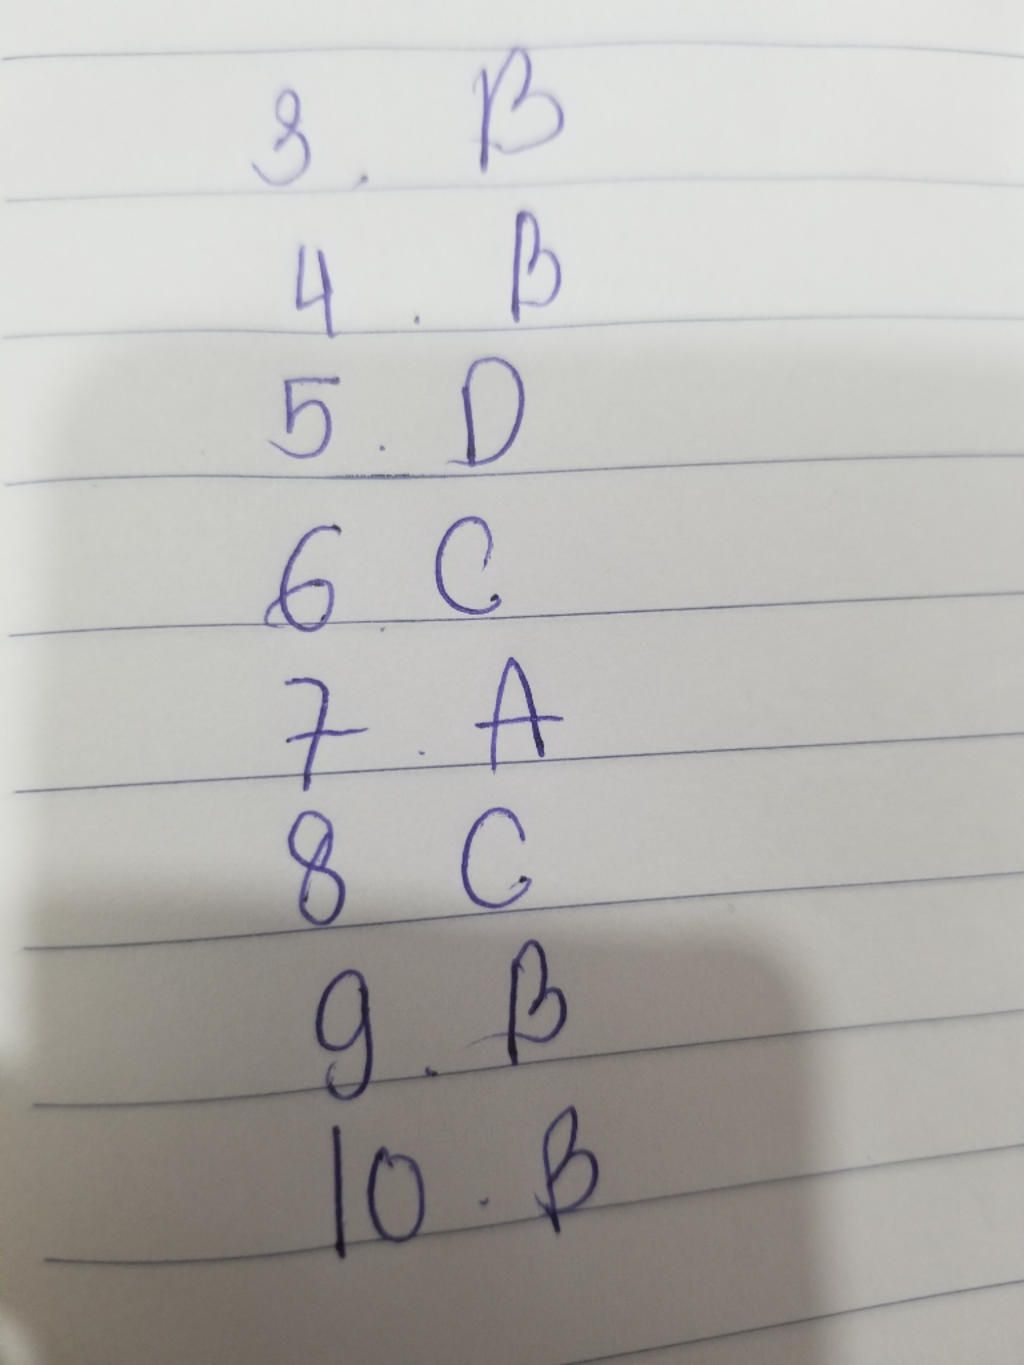 3. B
4. B
5. D
6. C
7. A
8 C
9. B
10. B